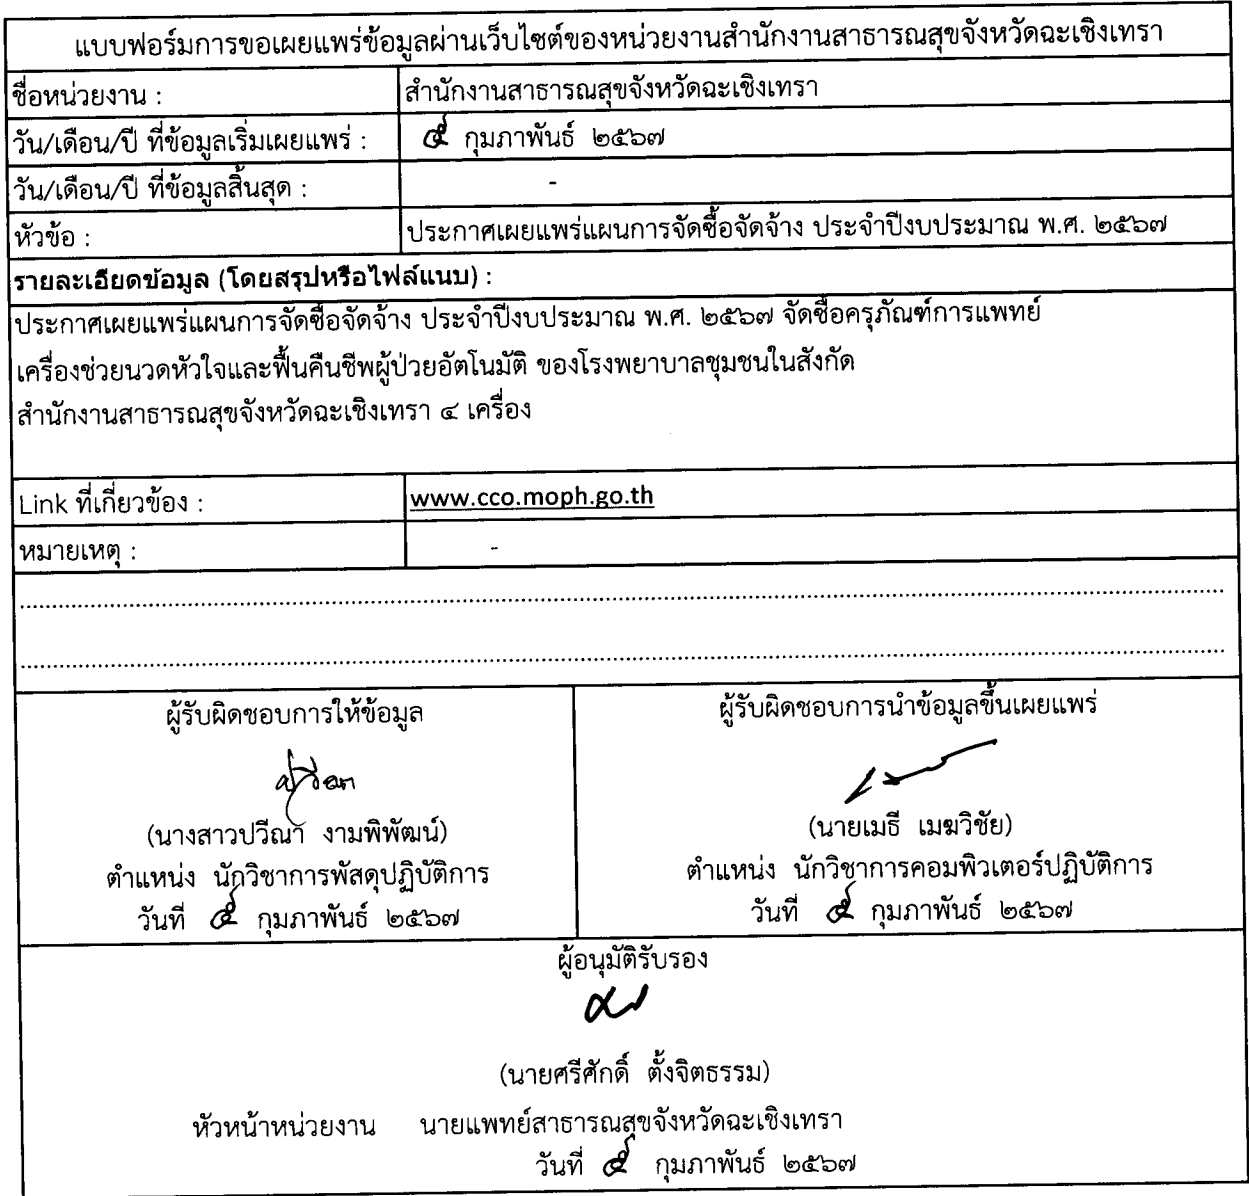 แบบฟอร์มการขอเผยแพร่ข้อมูลผ่านเว็บไซต์ของหน่วยงานสำนักงานสาธารณสุขจังหวัดฉะเชิงเทรา
ชื่อหน่วยงาน : สำนักงานสาธารณสุขจังหวัดฉะเชิงเทรา
วัน/เดือน/ปี ที่ข้อมูลเริ่มเผยแพร่ : ๕ กุมภาพันธ์ ๒๕๖๗
วัน/เดือน/ปี ที่ข้อมูลสิ้นสุด : -
หัวข้อ : ประกาศเผยแพร่แผนการจัดซื้อจัดจ้าง ประจำปีงบประมาณ พ.ศ. ๒๕๖๗
รายละเอียดข้อมูล (โดยสรุปหรือไฟล์แนบ) :
ประกาศเผยแพร่แผนการจัดซื้อจัดจ้าง ประจำปีงบประมาณ พ.ศ. ๒๕๖๗ จัดซื้อครุภัณฑ์การแพทย์
เครื่องช่วยนวดหัวใจและฟื้นคืนชีพผู้ป่วยอัตโนมัติ ของโรงพยาบาลชุมชนในสังกัด
สำนักงานสาธารณสุขจังหวัดฉะเชิงเทรา ๔ เครื่อง
Link ที่เกี่ยวข้อง : www.cco.moph.go.th
หมายเหตุ : -
ผู้รับผิดชอบการให้ข้อมูล
ปวีณา
(นางสาวปวีณา งามพิพัฒน์)
ตำแหน่ง นักวิชาการพัสดุปฏิบัติการ
วันที่ ๕ กุมภาพันธ์ ๒๕๖๗
ผู้รับผิดชอบการนำข้อมูลขึ้นเผยแพร่
(นายเมธี เมฆวิชัย)
ตำแหน่ง นักวิชาการคอมพิวเตอร์ปฏิบัติการ
วันที่ ๕ กุมภาพันธ์ ๒๕๖๗
ผู้อนุมัติรับรอง
(นายศรีศักดิ์ ตั้งจิตธรรม)
หัวหน้าหน่วยงาน นายแพทย์สาธารณสุขจังหวัดฉะเชิงเทรา
วันที่ ๕ กุมภาพันธ์ ๒๕๖๗